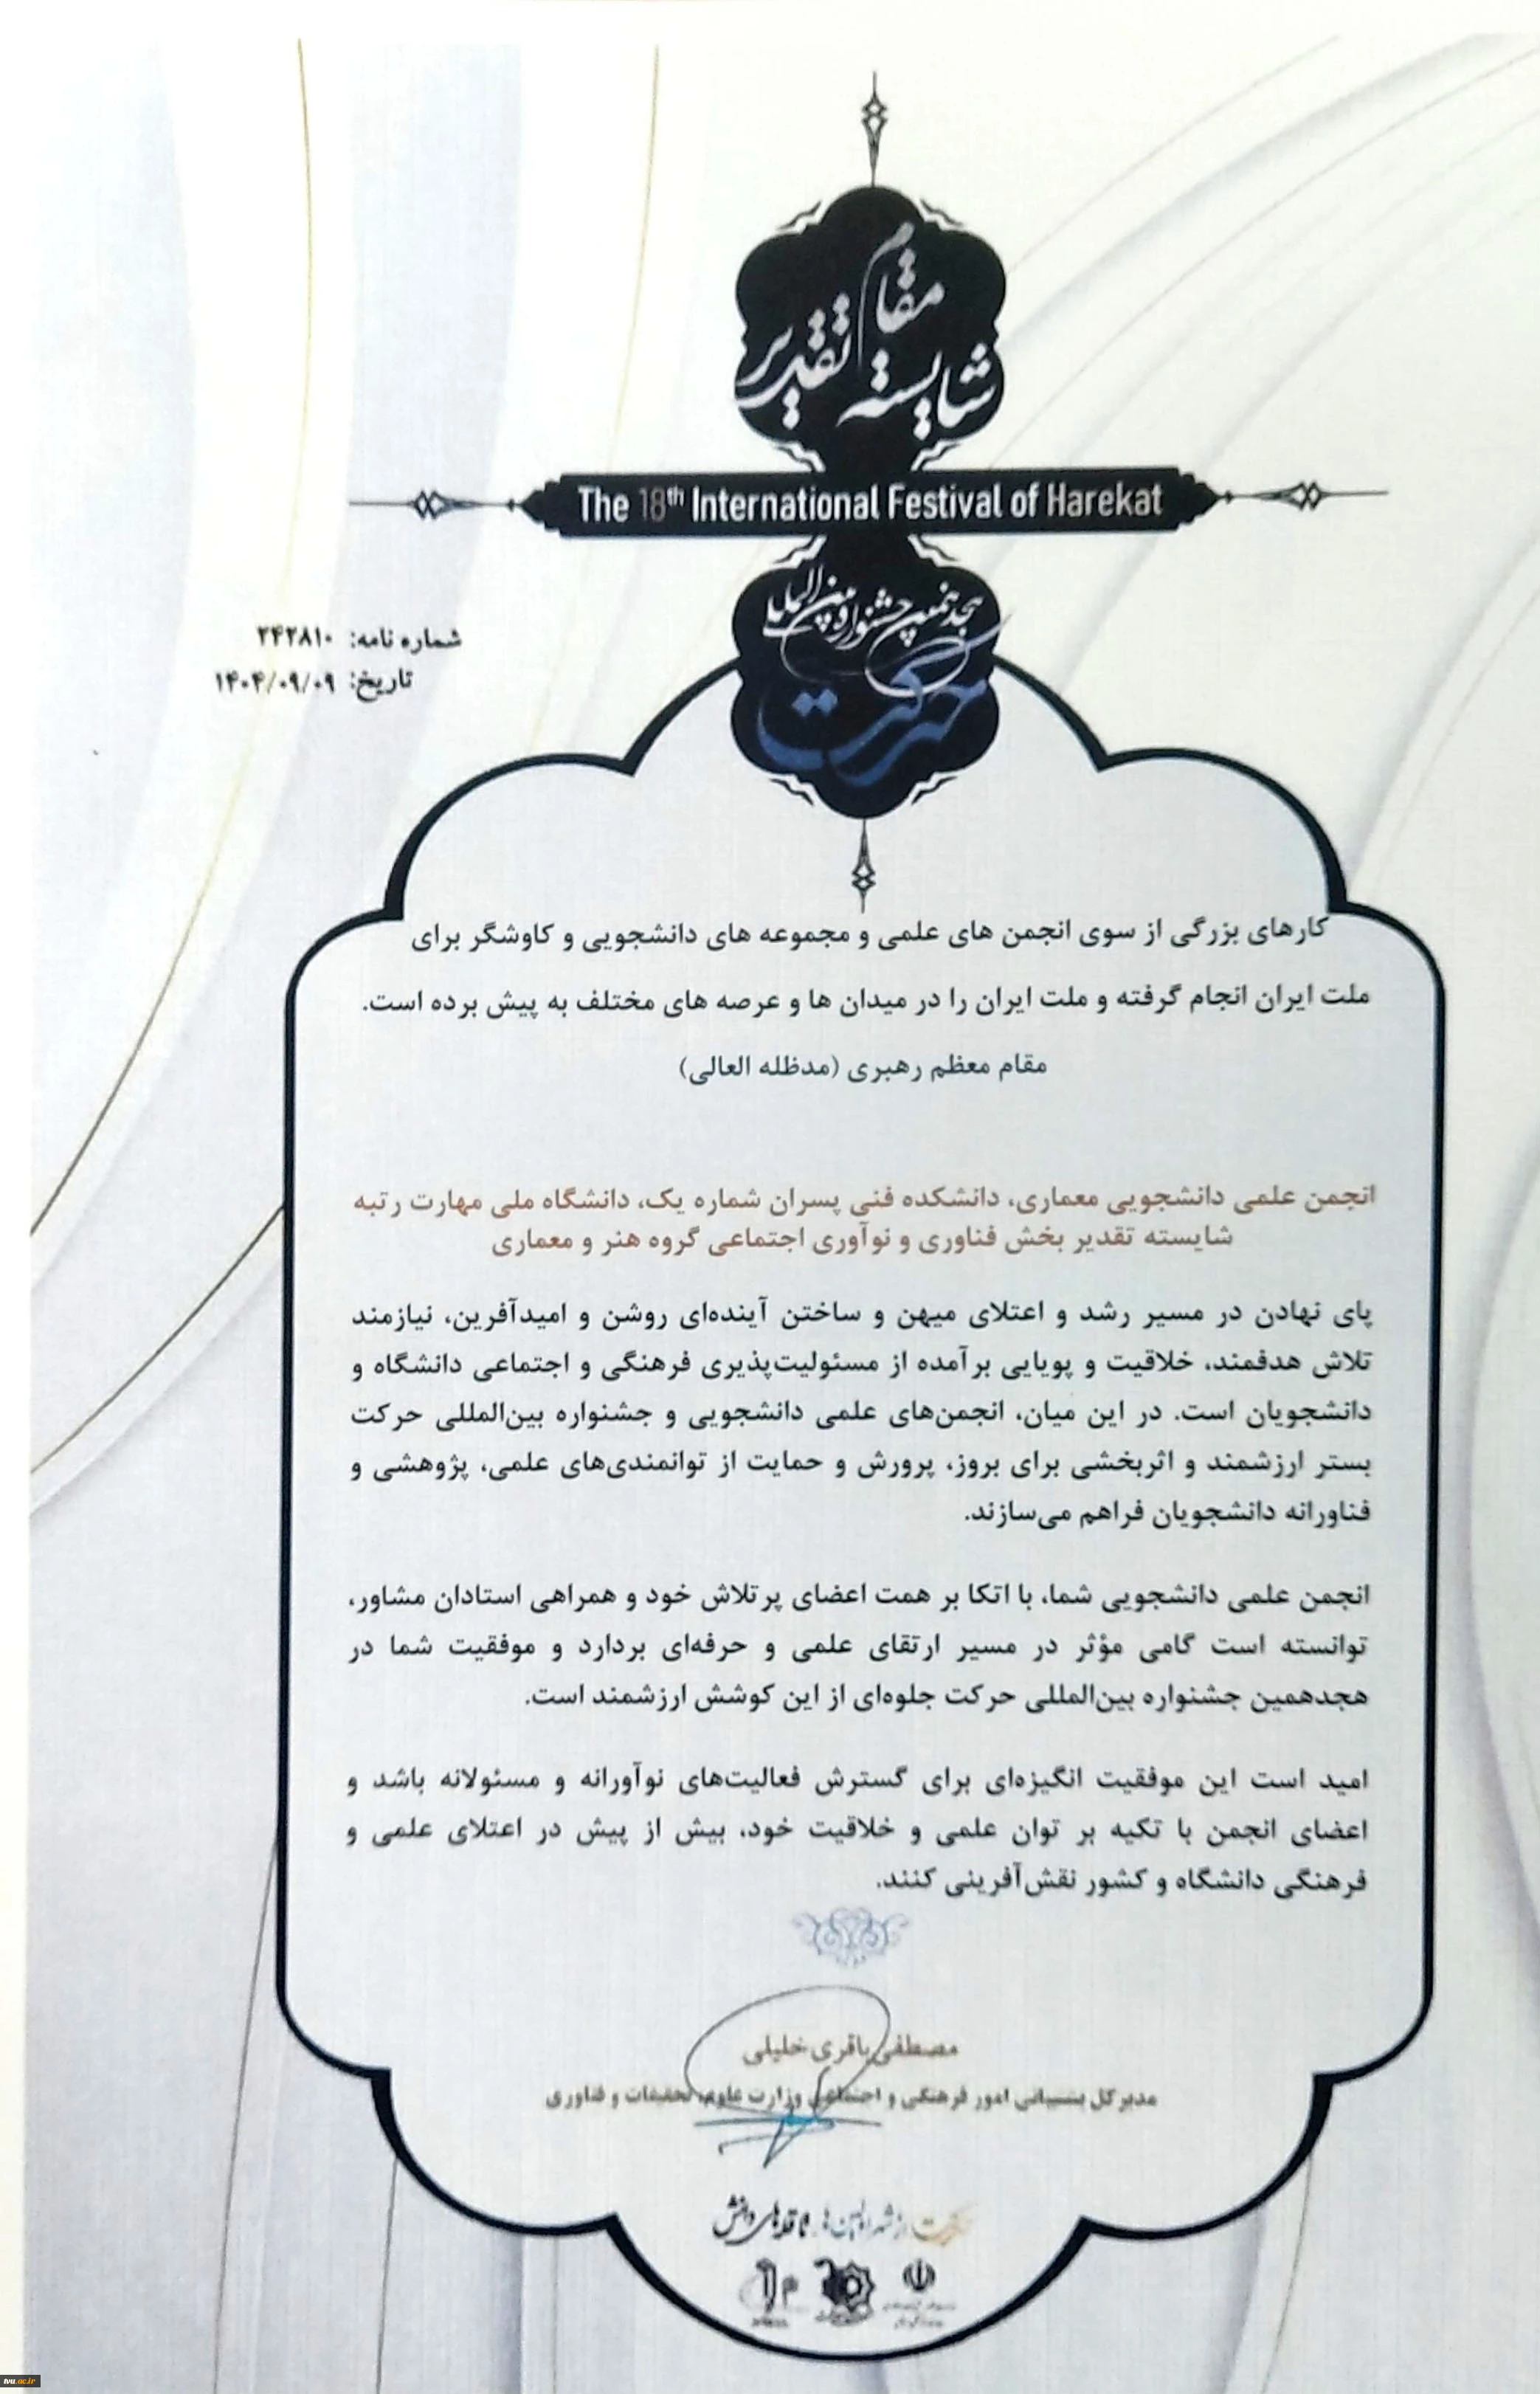 مقام
شایسته تقدیر
The 18th International Festival of Harekat
هجدهمین جشنواره بین المللی
حرکت
شماره نامه: ۲۴۲۸۱۰
تاریخ: ۱۴۰۴/۰۹/۰۹
کارهای بزرگی از سوی انجمن های علمی و مجموعه های دانشجویی و کاوشگر برای
ملت ایران انجام گرفته و ملت ایران را در میدان ها و عرصه های مختلف به پیش برده است.
مقام معظم رهبری (مدظله العالی)
انجمن علمی دانشجویی معماری، دانشکده فنی پسران شماره یک، دانشگاه ملی مهارت رتبه
شایسته تقدیر بخش فناوری و نوآوری اجتماعی گروه هنر و معماری
پای نهادن در مسیر رشد و اعتلای میهن و ساختن آینده‌ای روشن و امیدآفرین، نیازمند
تلاش هدفمند، خلاقیت و پویایی برآمده از مسئولیت‌پذیری فرهنگی و اجتماعی دانشگاه و
دانشجویان است. در این میان، انجمن‌های علمی دانشجویی و جشنواره بین‌المللی حرکت
بستر ارزشمند و اثربخشی برای بروز، پرورش و حمایت از توانمندی‌های علمی، پژوهشی و
فناورانه دانشجویان فراهم می‌سازند.
انجمن علمی دانشجویی شما، با اتکا بر همت اعضای پرتلاش خود و همراهی استادان مشاور،
توانسته است گامی مؤثر در مسیر ارتقای علمی و حرفه‌ای بردارد و موفقیت شما در
هجدهمین جشنواره بین‌المللی حرکت جلوه‌ای از این کوشش ارزشمند است.
امید است این موفقیت انگیزه‌ای برای گسترش فعالیت‌های نوآورانه و مسئولانه باشد و
اعضای انجمن با تکیه بر توان علمی و خلاقیت خود، بیش از پیش در اعتلای علمی و
فرهنگی دانشگاه و کشور نقش‌آفرینی کنند.
مصطفی باقری خلیلی
مدیر کل پشتیبانی امور فرهنگی و اجتماعی وزارت علوم، تحقیقات و فناوری
حرکت از شهر اولین‌ها تا قله‌های دانش
tvu.ac.ir